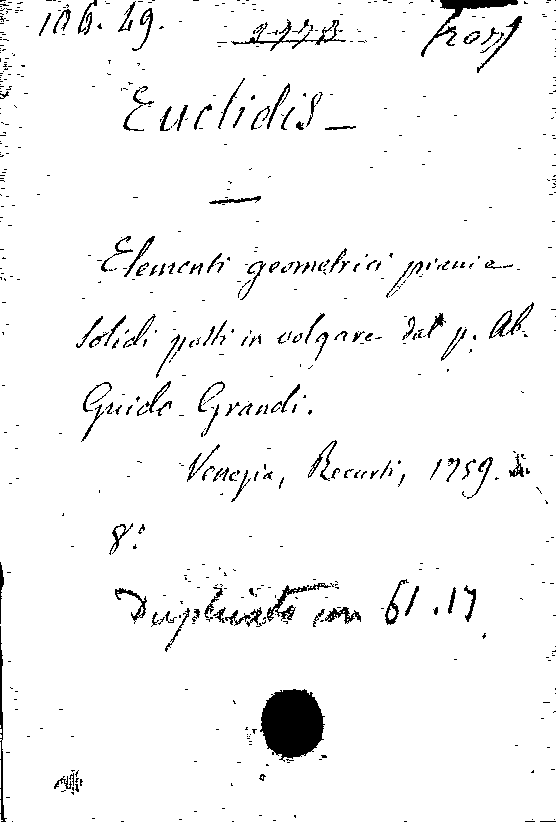 106. 49. 2778
Euclidis
Elementi geometrici piani e
solidi posti in volgare dal p. Ab.
Guido Grandi.
Venezia, Recurti, 1759.
8º
Duplicato con 61.17